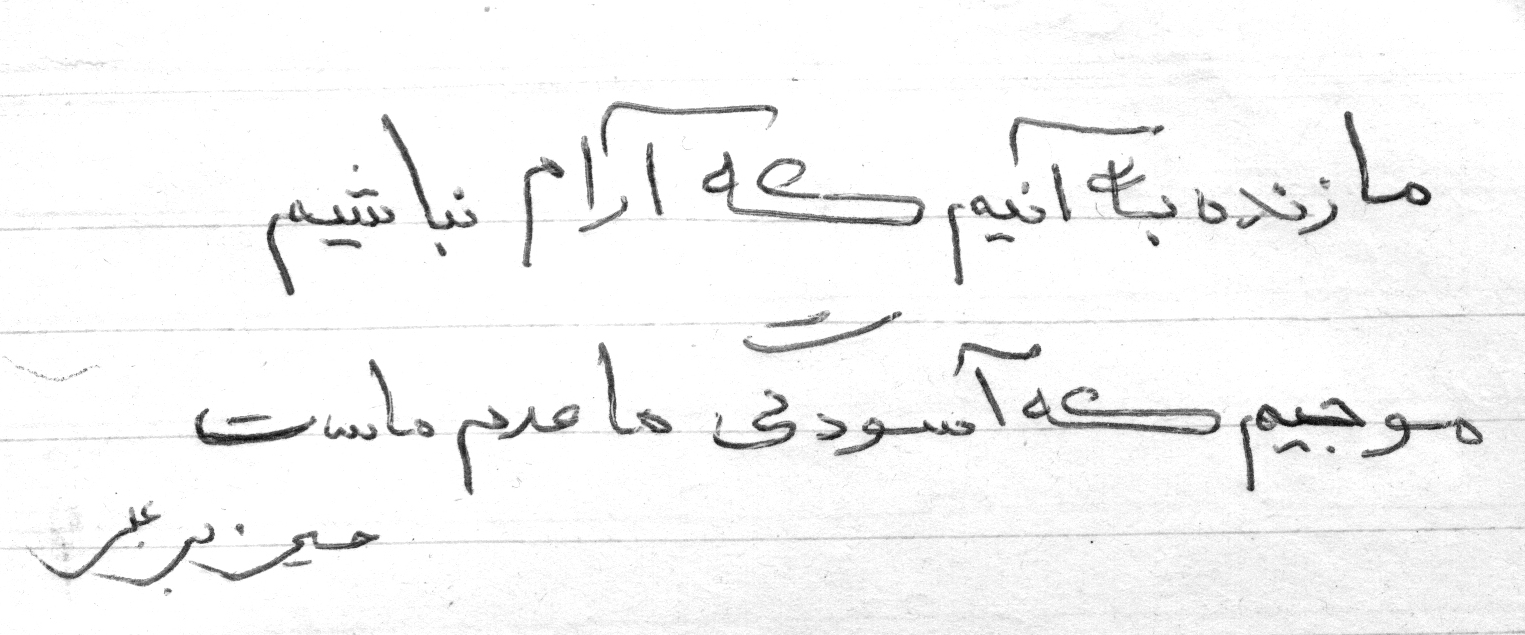 ما زنده به آنیم که آرام نباشیم
موجیم که آسودگی ما عدم ماست
حسین بر علی